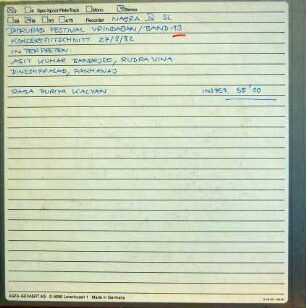 Spur/Spool/Piste/Track Mono Stereo
Recorder NAGRA IV SL
DHRUPAD FESTIVAL VRINDABAN/BAND 13
KONZERTMITSCHNITT 27/3/82
INTERPRETEN:
ASIT KUMAR BANERJEE, RUDRA VINA
DINESH PRASAD, PAKHAWAJ
RAGA PURIYA KALYAN INDEX 55'00
AGFA-GEVAERT AG · D 5090 Leverkusen 1 · Made in Germany